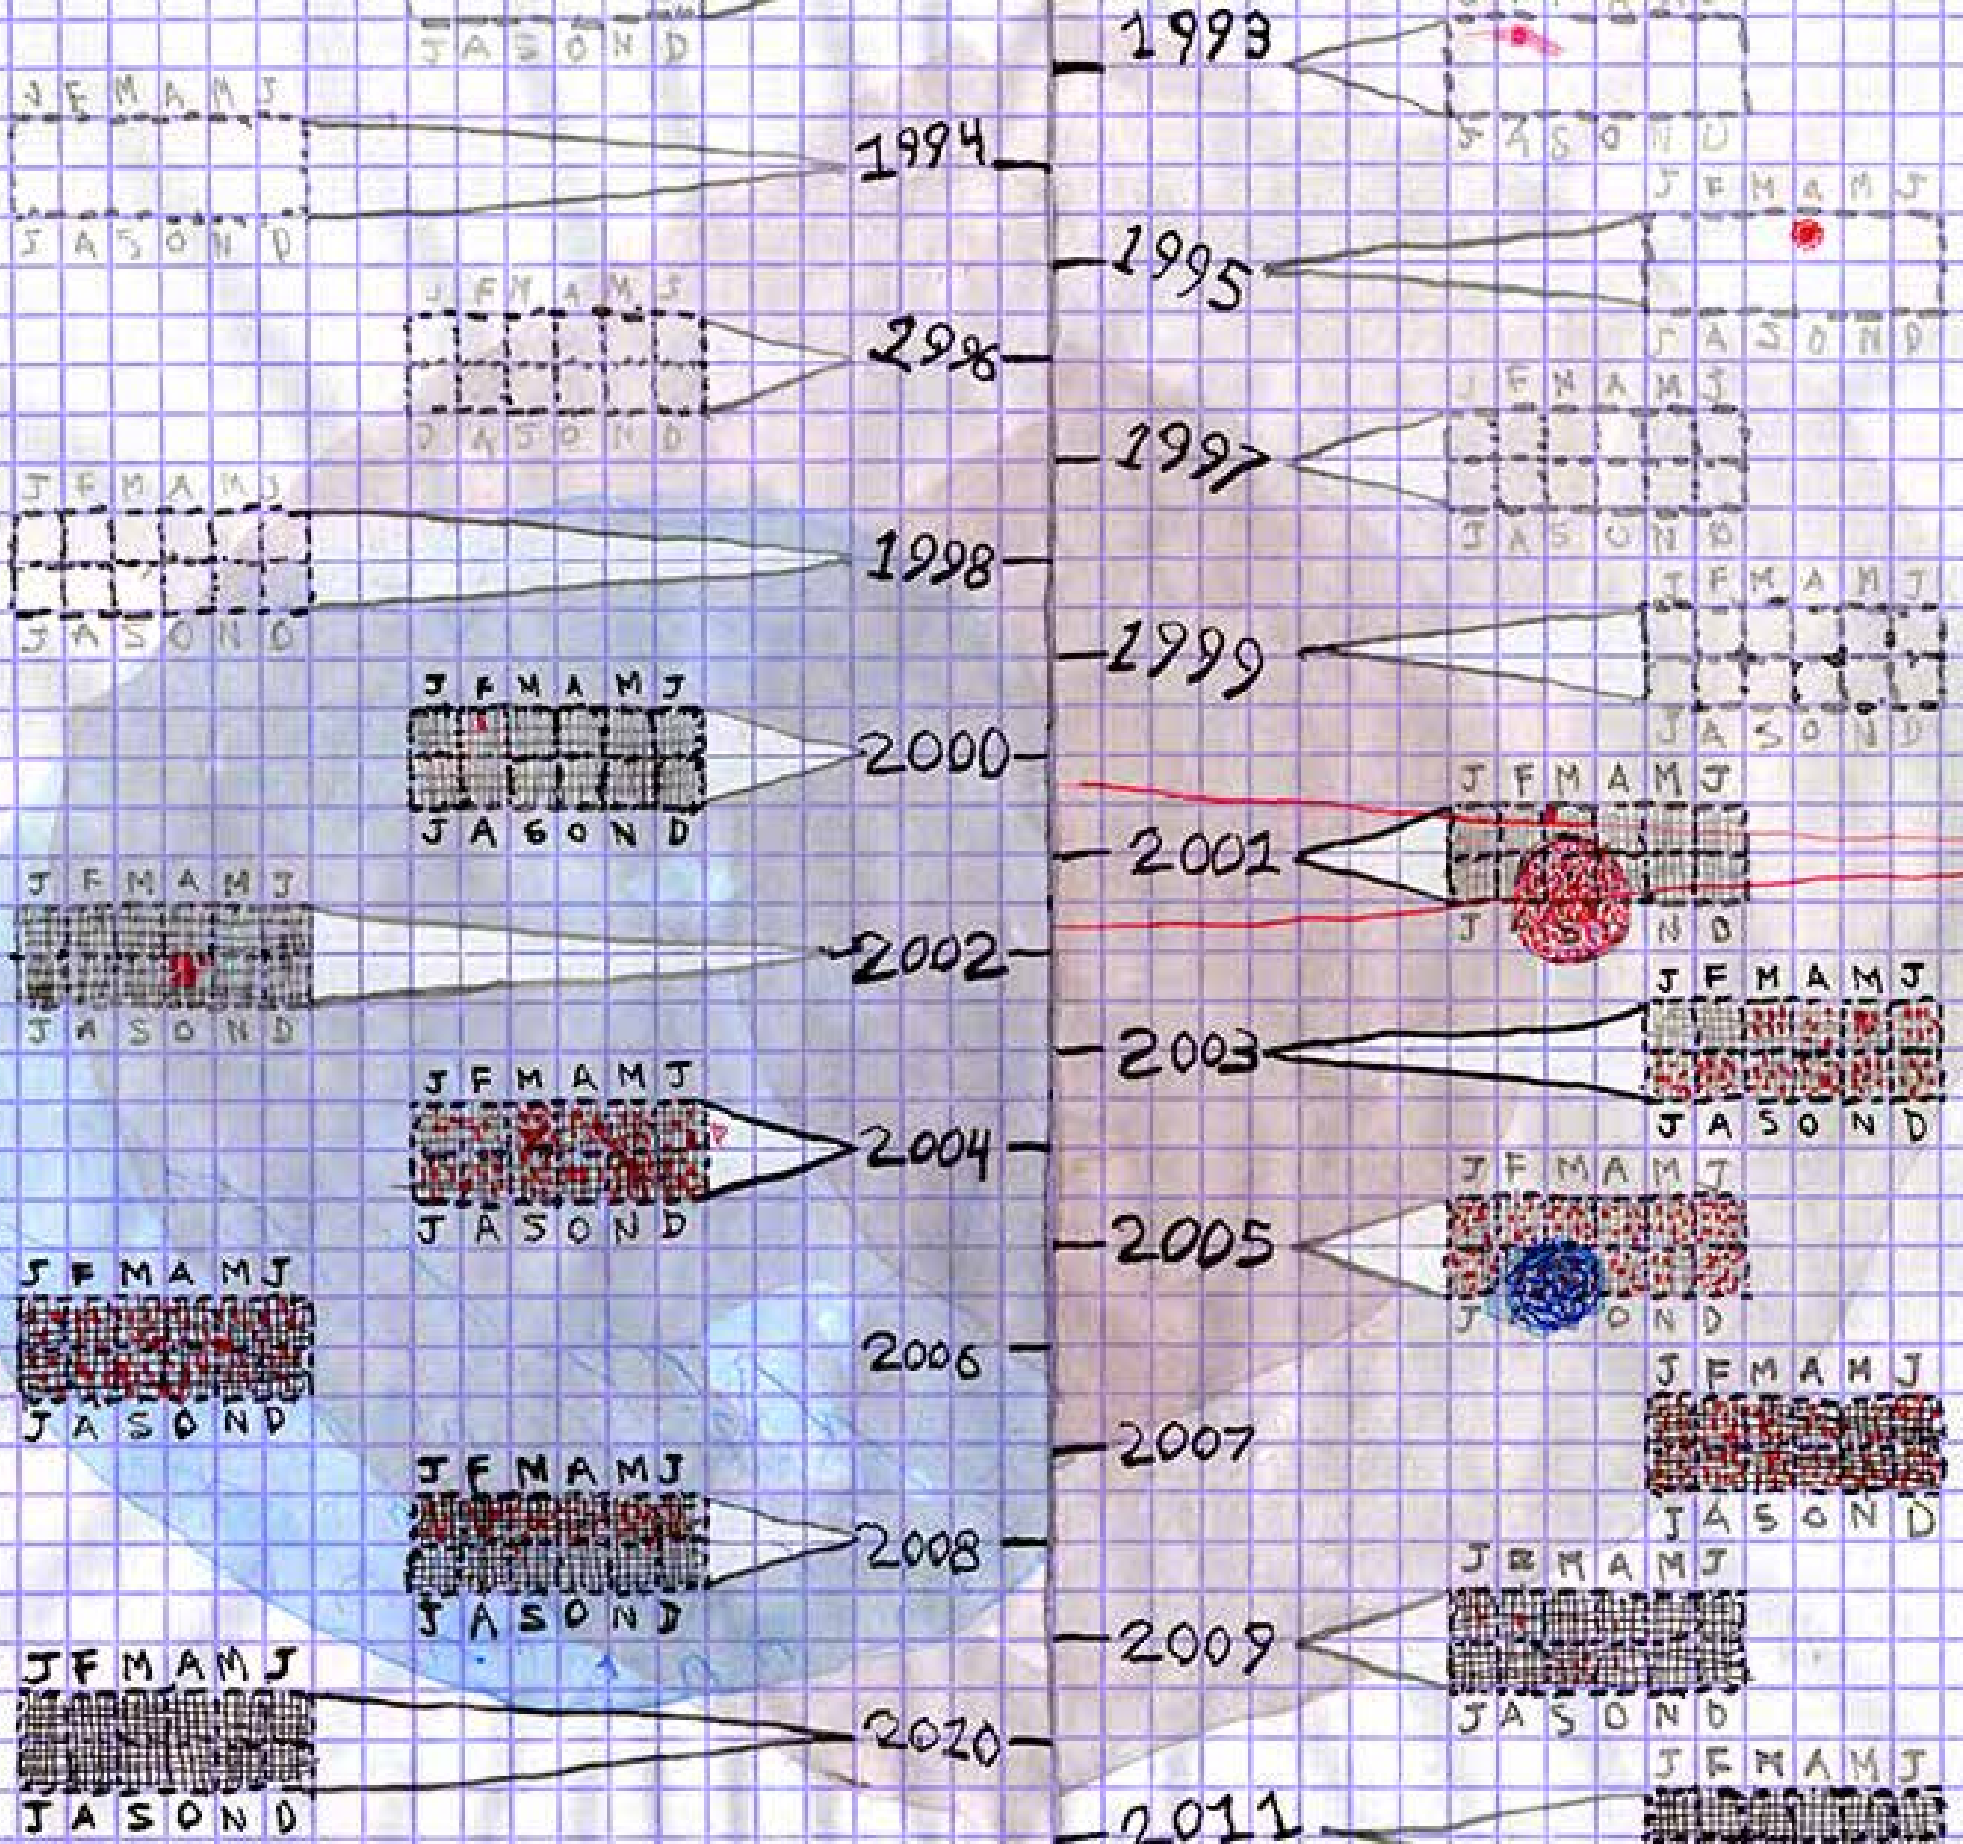 J A S O N D
1993
J A S O N D
J F M A M J
1994
J A S O N D
J F M A M J
1995
J A S O N D
J F M A M J
2996
J A S O N D
J F M A M J
1997
J A S O N D
J F M A M J
1998
J A S O N D
J F M A M J
1999
J A S O N D
J F M A M J
2000
J A S O N D
J F M A M J
2001
J A S N D
J F M A M J
2002
J A S O N D
J F M A M J
2003
J A S O N D
J F M A M J
2004
J A S O N D
J F M A M J
2005
J O N D
J F M A M J
2006
J A S O N D
J F M A M J
2007
J A S O N D
J F M A M J
2008
J A S O N D
J M A M J
2009
J A S O N D
J F M A M J
2020
J A S O N D
J F M A M J
2011